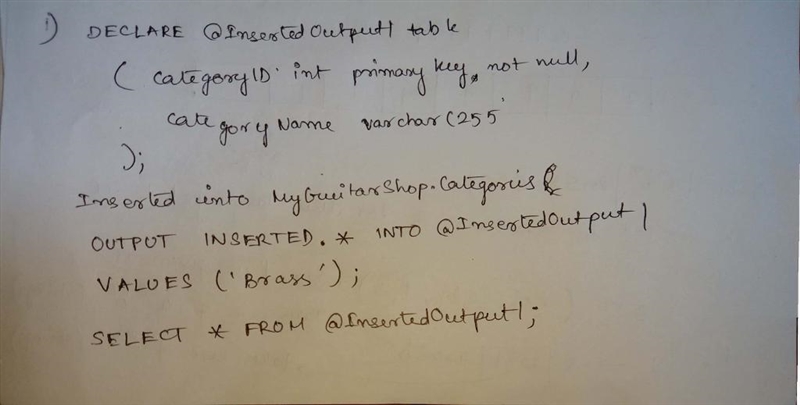 1) DECLARE @InsertedOutput1 table
( CategoryID int primary key, not null,
CategoryName varchar(255
);
Inserted into MyGuitarShop.Categoris
OUTPUT INSERTED.* INTO @InsertedOutput1
VALUES ('Brass');
SELECT * FROM @InsertedOutput1;